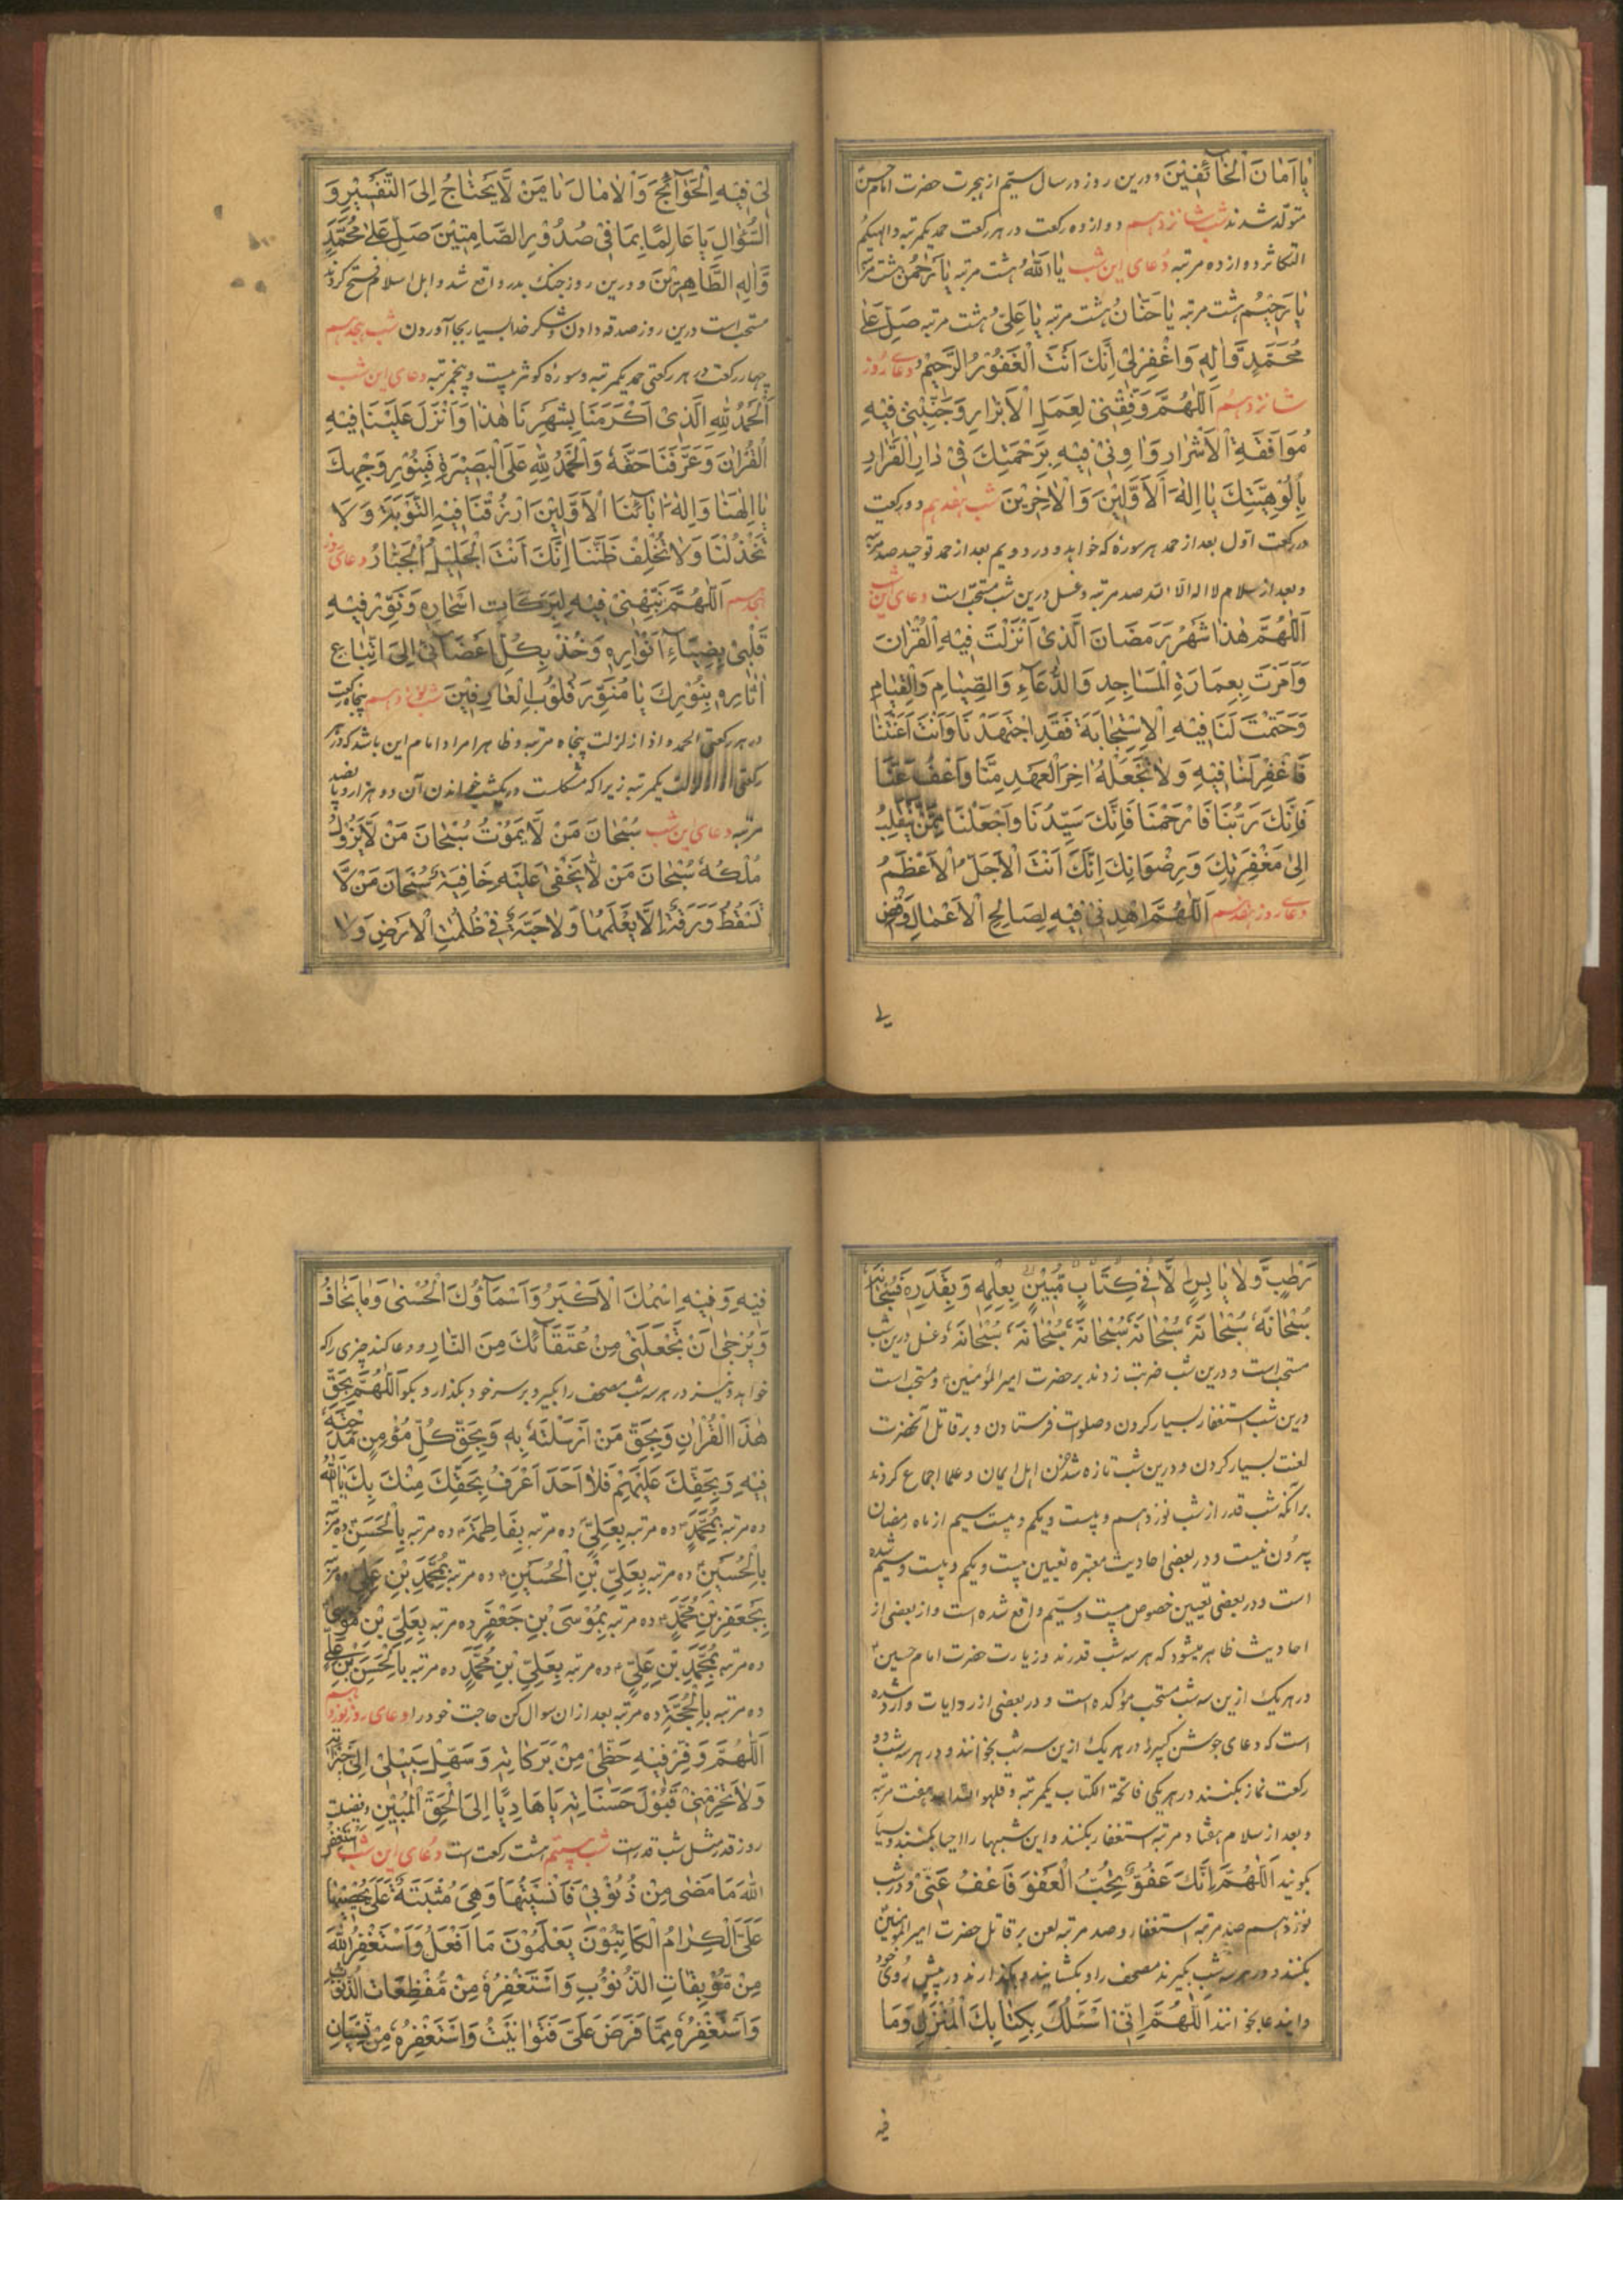 يَا اَمَانَ الْخَآئِفِيْنَ و درین روز در سال سیّم از هجرت حضرت امام حسن
متولد شدند شب شانزدهم دوازده رکعت در هر رکعت حمد یکمرتبه و الهیکم
التکاثر دوازده مرتبه دعای این شب يَا اَللّٰهُ هشت مرتبه يَا رَحْمٰنُ هشت مرتبه
يَا رَحِيْمُ هشت مرتبه يَا حَنَّانُ هشت مرتبه يَا عَلِىُّ هشت مرتبه صَلِّ عَلٰى
مُحَمَّدٍ وَّاٰلِهٖ وَاغْفِرْلِىْ اِنَّكَ اَنْتَ الْغَفُوْرُ الرَّحِيْمُ دعای روز
شانزدهم اَللّٰهُمَّ وَفِّقْنِىْ لِعَمَلِ الْاَبْرَارِ وَجَنِّبْنِىْ فِيْهِ
مُوَافَقَةَ الْاَشْرَارِ وَاٰوِنِىْ فِيْهِ بِرَحْمَتِكَ فِىْ دَارِ الْقَرَارِ
بِاُلُوْهِيَّتِكَ يَا اِلٰهَ الْاَوَّلِيْنَ وَالْاٰخِرِيْنَ شب هفدهم دو رکعت
در رکعت اول بعد از حمد هر سوره که خواهد و در دویم بعد از حمد توحید صد مرتبه
و بعد از سلام لا اله الا الله صد مرتبه و غسل درین شب مستحب است دعای این شب
اَللّٰهُمَّ هٰذَا شَهْرُ رَمَضَانَ الَّذِىْ اَنْزَلْتَ فِيْهِ الْقُرْاٰنَ
وَاَمَرْتَ بِعِمَارَةِ الْمَسَاجِدِ وَالدُّعَآءِ وَالصِّيَامِ وَالْقِيَامِ
وَحَتَمْتَ لَنَا فِيْهِ الْاِسْتِجَابَةَ فَقَدِ اجْتَهَدْنَا وَاَنْتَ اَعَنْتَنَا
فَاغْفِرْ لَنَا فِيْهِ وَلَا تَجْعَلْهُ اٰخِرَ الْعَهْدِ مِنَّا وَاعْفُ عَنَّا
فَاِنَّكَ رَبُّنَا فَارْحَمْنَا فَاِنَّكَ سَيِّدُنَا وَاجْعَلْنَا مِمَّنْ يَنْقَلِبُ
اِلٰى مَغْفِرَتِكَ وَرِضْوَانِكَ اِنَّكَ اَنْتَ الْاَجَلُّ الْاَعْظَمُ
دعای روز هفدهم اَللّٰهُمَّ اهْدِنِىْ فِيْهِ لِصَالِحِ الْاَعْمَالِ وَاقْضِ
لى
لِىْ فِيْهِ الْحَوَآئِجَ وَالْاٰمَالَ يَا مَنْ لَّا يَحْتَاجُ اِلَى التَّفْسِيْرِ وَ
السُّؤَالِ يَا عَالِمًا بِمَا فِىْ صُدُوْرِ الصَّامِتِيْنَ صَلِّ عَلٰى مُحَمَّدٍ
وَّاٰلِهِ الطَّاهِرِيْنَ و درین روز جنگ بدر واقع شد و اهل اسلام فتح کردند
مستحب است درین روز صدقه دادن و شکر خدا بسیار بجا آوردن شب هجدهم
چهار رکعت در هر رکعتی حمد یکمرتبه و سوره کوثر بیست و پنجمرتبه دعای این شب
اَلْحَمْدُ لِلّٰهِ الَّذِىْ اَكْرَمَنَا بِشَهْرِنَا هٰذَا وَاَنْزَلَ عَلَيْنَا فِيْهِ
الْقُرْاٰنَ وَعَرَّفَنَا حَقَّهٗ وَالْحَمْدُ لِلّٰهِ عَلَى الْبَصِيْرَةِ فَبِنُوْرِ وَجْهِكَ
يَا اِلٰهَنَا وَاِلٰهَ اٰبَآئِنَا الْاَوَّلِيْنَ ارْزُقْنَا فِيْهِ التَّوْبَةَ وَلَا
تَخْذُلْنَا وَلَا تُخْلِفْ ظَنَّنَا اِنَّكَ اَنْتَ الْجَلِيْلُ الْجَبَّارُ دعای روز
هجدهم اَللّٰهُمَّ نَبِّهْنِىْ فِيْهِ لِبَرَكَاتِ اَسْحَارِهٖ وَنَوِّرْ فِيْهِ
قَلْبِىْ بِضِيَآءِ اَنْوَارِهٖ وَخُذْ بِكُلِّ اَعْضَآئِىْ اِلَى اتِّبَاعِ
اٰثَارِهٖ بِنُوْرِكَ يَا مُنَوِّرَ قُلُوْبِ الْعَارِفِيْنَ شب نوزدهم پنجاه رکعت
در هر رکعتی الحمد و اذا زلزلت پنجاه مرتبه و ظاهرا مراد امام این باشد که در هر
رکعتی یکمرتبه زیرا که مشکلست در یکشب خواندن آن دو هزار و پانصد
مرتبه دعای این شب سُبْحَانَ مَنْ لَّا يَمُوْتُ سُبْحَانَ مَنْ لَّا يَزُوْلُ
مُلْكُهٗ سُبْحَانَ مَنْ لَّا يَخْفٰى عَلَيْهِ خَافِيَةٌ سُبْحَانَ مَنْ لَّا
تَسْقُطُ وَرَقَةٌ اِلَّا يَعْلَمُهَا وَلَا حَبَّةٍ فِىْ ظُلُمٰتِ الْاَرْضِ وَلَا
رَطْبٍ وَّلَا يَابِسٍ اِلَّا فِىْ كِتَابٍ مُّبِيْنٍ بِعِلْمِهٖ وَبِقَدَرِهٖ فَسُبْحَانَهٗ
سُبْحَانَهٗ سُبْحَانَهٗ سُبْحَانَهٗ سُبْحَانَهٗ سُبْحَانَهٗ و غسل درین شب
مستحب است و درین شب ضربت زدند بر حضرت امیر المؤمنین و مستحب است
درین شب استغفار بسیار کردن و صلوات فرستادن و بر قاتل آنحضرت
لعنت بسیار کردن و درین شب تازه شد حزن اهل ایمان و علما اجماع کردند
بر آنکه شب قدر از شب نوزدهم و بیست و یکم و بیست سیم از ماه رمضان
بیرون نیست و در بعضی احادیث معتبره تعیین بیست و یکم و بیست و سیم شده
است و در بعضی تعیین خصوص بیست و سیّم واقع شده است و از بعضی از
احادیث ظاهر میشود که هر سه شب قدرند و زیارت حضرت امام حسین
در هر یک ازین سه شب مستحب مؤکده است و در بعضی از روایات وارد شده
است که دعای جوشن کبیر در هر یک ازین سه شب بخوانند و در هر سه شب دو
رکعت نماز بکنند در هر یکی فاتحة الکتاب یکمرتبه و قل هو الله احد هفت مرتبه
و بعد از سلام هفتاد مرتبه استغفار بکنند و این شبها را احیا بکنند و بسیار
بگویند اَللّٰهُمَّ اِنَّكَ عَفُوٌّ تُحِبُّ الْعَفْوَ فَاعْفُ عَنِّىْ و در شب
نوزدهم صد مرتبه استغفار و صد مرتبه لعن بر قاتل حضرت امیر المؤمنین
بکنند و در هر سه شب بگیرند مصحف را و بکشایند و بگذارند در پیش روی خود
و ایندعا بخوانند اَللّٰهُمَّ اِنِّىْ اَسْئَلُكَ بِكِتَابِكَ الْمُنْزَلِ وَمَا
فیه
فِيْهِ وَفِيْهِ اسْمُكَ الْاَكْبَرُ وَاَسْمَآؤُكَ الْحُسْنٰى وَمَا يُخَافُ
وَيُرْجٰى اَنْ تَجْعَلَنِىْ مِنْ عُتَقَآئِكَ مِنَ النَّارِ و دعا کند چیزی را که
خواهد و نیز در هر سه شب مصحف را بگیر و بر سر خود بگذار و بگو اَللّٰهُمَّ بِحَقِّ
هٰذَا الْقُرْاٰنِ وَبِحَقِّ مَنْ اَرْسَلْتَهٗ بِهٖ وَبِحَقِّ كُلِّ مُؤْمِنٍ مَدَحْتَهٗ
فِيْهِ وَبِحَقِّكَ عَلَيْهِمْ فَلَا اَحَدَ اَعْرَفُ بِحَقِّكَ مِنْكَ بِكَ يَا اَللّٰهُ
ده مرتبه بِمُحَمَّدٍ ده مرتبه بِعَلِىٍّ ده مرتبه بِفَاطِمَةَ ده مرتبه بِالْحَسَنِ ده مرتبه
بِالْحُسَيْنِ ده مرتبه بِعَلِىِّ بْنِ الْحُسَيْنِ ده مرتبه بِمُحَمَّدِ بْنِ عَلِىٍّ ده مرتبه
بِجَعْفَرِ بْنِ مُحَمَّدٍ ده مرتبه بِمُوْسَى بْنِ جَعْفَرٍ ده مرتبه بِعَلِىِّ بْنِ مُوْسٰى
ده مرتبه بِمُحَمَّدِ بْنِ عَلِىٍّ ده مرتبه بِعَلِىِّ بْنِ مُحَمَّدٍ ده مرتبه بِالْحَسَنِ بْنِ عَلِىٍّ
ده مرتبه بِالْحُجَّةِ ده مرتبه بعد از ان سوال کن حاجت خود را دعای روز نوزدهم
اَللّٰهُمَّ وَفِّرْ فِيْهِ حَظِّىْ مِنْ بَرَكَاتِهٖ وَسَهِّلْ سَبِيْلِىْ اِلٰى خَيْرَاتِهٖ
وَلَا تَحْرِمْنِىْ قَبُوْلَ حَسَنَاتِهٖ يَا هَادِيًا اِلَى الْحَقِّ الْمُبِيْنِ و فضیلت
روز قدر مثل شب قدرست شب بیستم هشت رکعت است دعای این شب اَسْتَغْفِرُ
اللّٰهَ مَا مَضٰى مِنْ ذُنُوْبِىْ فَاَنْسَيْتُهَا وَهِىَ مُثْبَتَةٌ عَلَىَّ يُحْصِيْهَا
عَلَىَّ الْكِرَامُ الْكَاتِبُوْنَ يَعْلَمُوْنَ مَا اَفْعَلُ وَاَسْتَغْفِرُ اللّٰهَ
مِنْ مُّوْبِقَاتِ الذُّنُوْبِ وَاَسْتَغْفِرُهٗ مِنْ مُّفْظِعَاتِ الذُّنُوْبِ
وَاَسْتَغْفِرُهٗ مِمَّا فَرَضَ عَلَىَّ فَتَوَانَيْتُ وَاَسْتَغْفِرُهٗ مِنْ نِّسْيَانِ